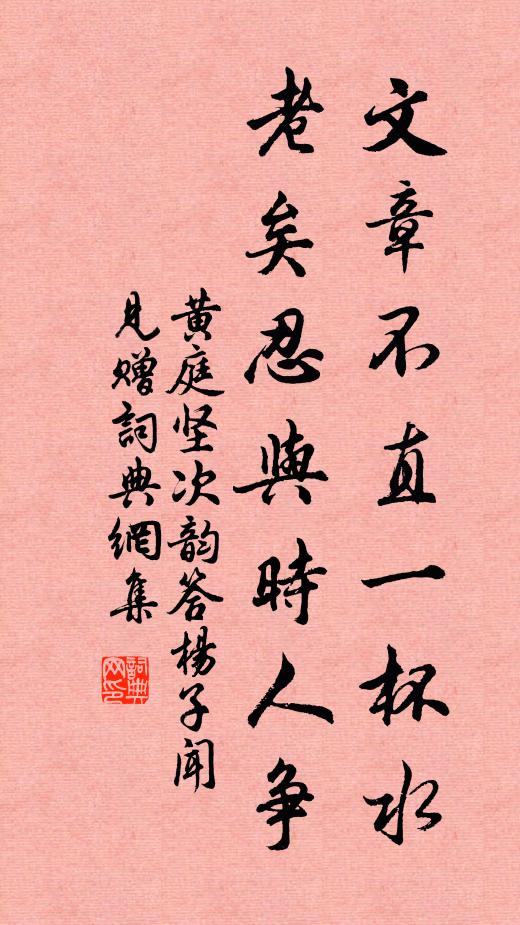 文章不直一杯水
老矣忍與時人争
黄庭坚次韵答楊子聞
见贈詞典網集
詞典网印